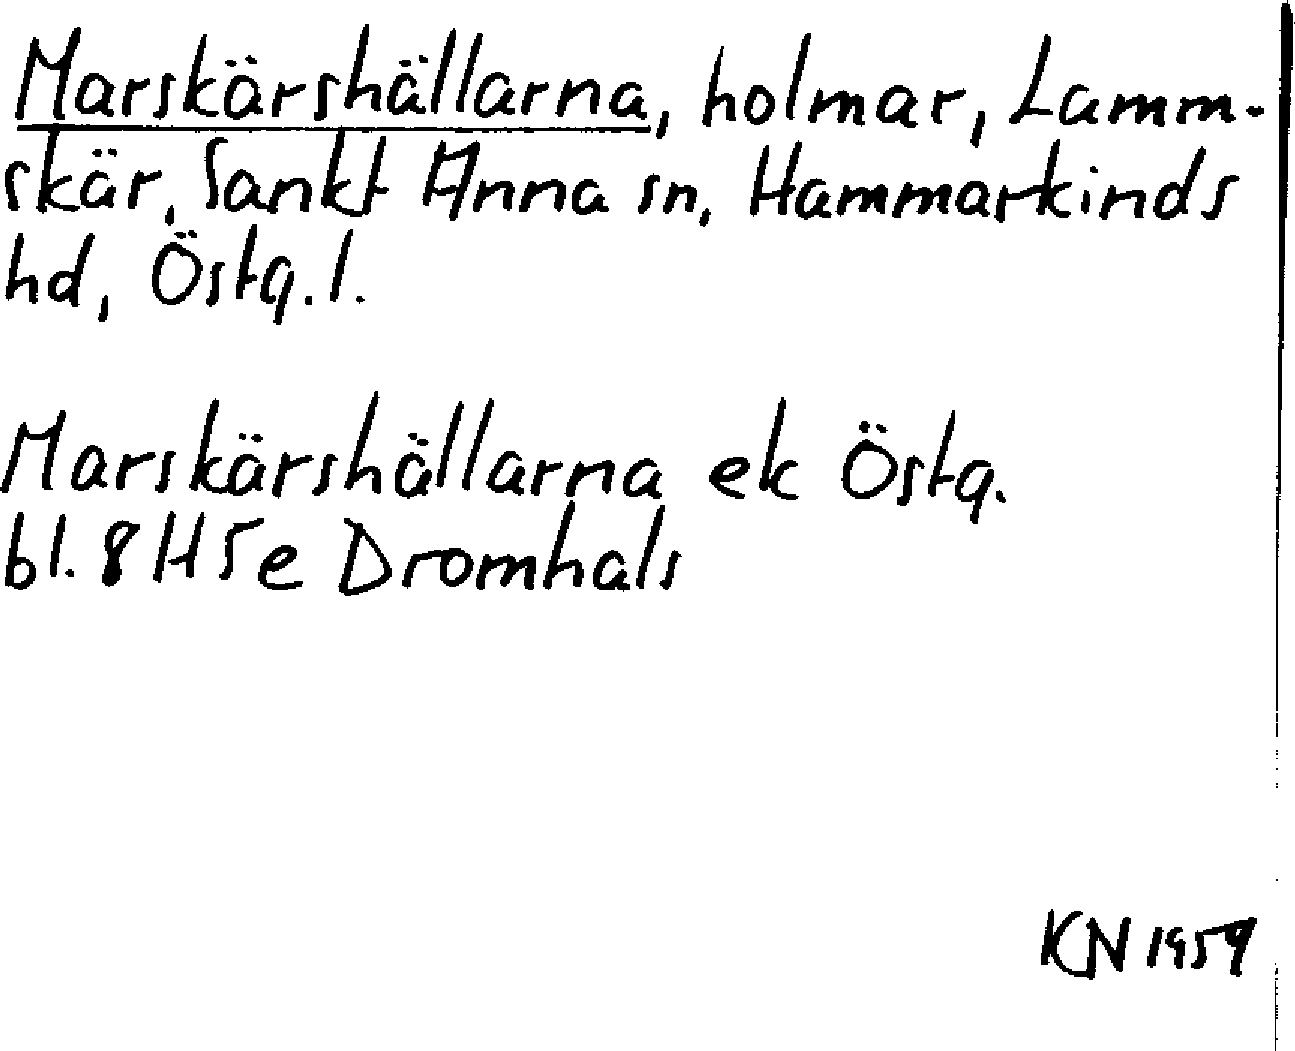 Marskärshällarna, holmar, Lamm-
skär, Sankt Anna sn, Hammarkinds
hd, Östg.l.
Marskärshällarna ek Östg.
bl. 8H5e Dromhals
KN 1959